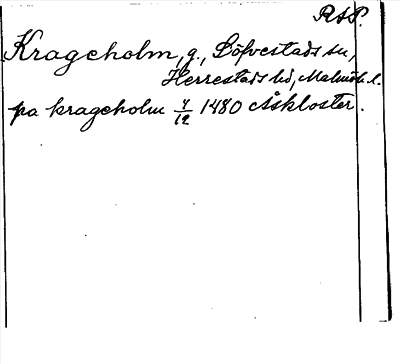 RAP.
Krageholm, g., Söfvestads sn,
Herrestads hd, Malmöh. l.
pa krageholm 7/12 1480 Åskloster.